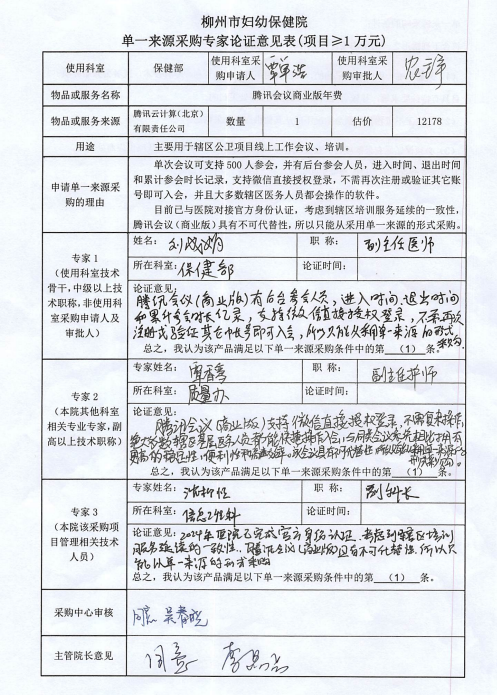 柳州市妇幼保健院
单一来源采购专家论证意见表(项目≥1 万元)
使用科室
保健部
使用科室采购申请人
使用科室采购审批人
物品或服务名称
腾讯会议商业版年费
物品或服务来源
腾讯云计算(北京)有限责任公司
数量
1
估价
12178
用途
主要用于辖区公卫项目线上工作会议、培训。
申请单一来源采购的理由
单次会议可支持 500 人参会,并有后台参会人员,进入时间、退出时间
和累计参会时长记录,支持微信直接授权登录,不需再次注册或验证其它账
号即可入会,并且大多数辖区医务人员都会操作的软件。
目前已与医院对接官方身份认证,考虑到辖区培训服务延续的一致性,
腾讯会议(商业版)具有不可替代性,所以只能从采用单一来源的形式采购。
专家 1
(使用科室技术
骨干,中级以上技
术职称,非使用科
室采购申请人及
审批人)
姓名:
职 称:
副主任医师
所在科室:
保健部
论证时间:
论证意见:
腾讯会议(商业版)有后台参会人员,进入时间、退出时间
和累计参会时长记录,支持微信直接授权登录,不需再次
注册或验证其它帐号即可入会,所以只能从采用单一来源的形式采购
总之,我认为该产品满足以下单一来源采购条件中的第 (1) 条。
专家 2
(本院其他科室
相关专业专家,副
高以上技术职称)
专家姓名:
职 称:
副主任护师
所在科室:
质量办
论证时间:
论证意见:
腾讯会议(商业版)支持微信直接授权登录,不需复杂操作,
总之,我认为该产品满足以下单一来源采购条件中的第 (1) 条。
专家 3
(本院该采购项
目管理相关技术
人员)
专家姓名:
职 称:
副科长
所在科室:
信息工程科
论证时间:
论证意见:2024年医院已完成官方身份认证、考虑到辖区培训
服务延续的一致性,腾讯会议(商业版)具有不可代替性,所以只
能以单一来源的形式采购
总之,我认为该产品满足以下单一来源采购条件中的第 (1) 条。
采购中心审核
同意 吴春晓
主管院长意见
同意